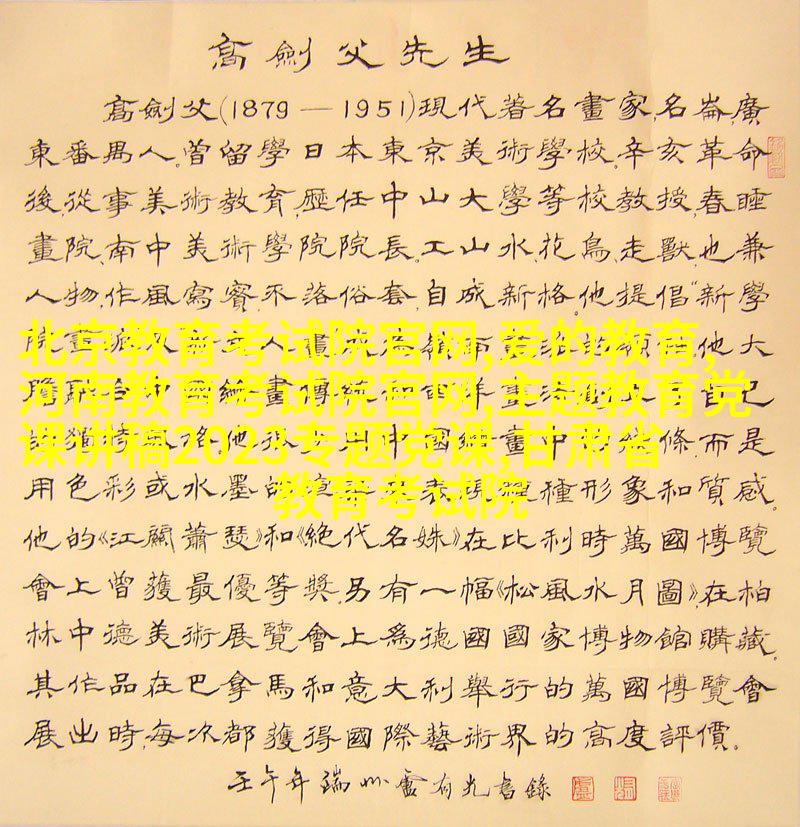 高劍父先生
高劍父(1879—1951)現代著名畫家,名崙,廣
東番禺人。曾留學日本東京美術學校。辛亥革命
後,從事美術教育,歷任中山大學等校教授,春睡
畫院,南中美術學院院長。工山水,花鳥,走獸,也兼
人物,作風寫實,不落俗套,自成新格。他提倡"新學
北京教育考试院官网,爱的教育,
他大
河南教育考试院官网,主题教育党
繪畫傳統和
课讲稿2023专题党课,甘肃省
中國繪畫中 條,而是
教育考试院
用色彩或水墨的 表現 種形象和質感。
他的《江關蕭瑟》和《絕代名姝》在比利時萬國博覽
會上曾獲最優等獎,另有一幅《松風水月圖》,在柏
林中德美術展覽會上爲德國國家博物館購藏。
其作品在巴拿馬和意大利舉行的萬國博覽會
展出時,每次都獲得國際藝術界的高度評價。
壬午年端州盧有光書錄